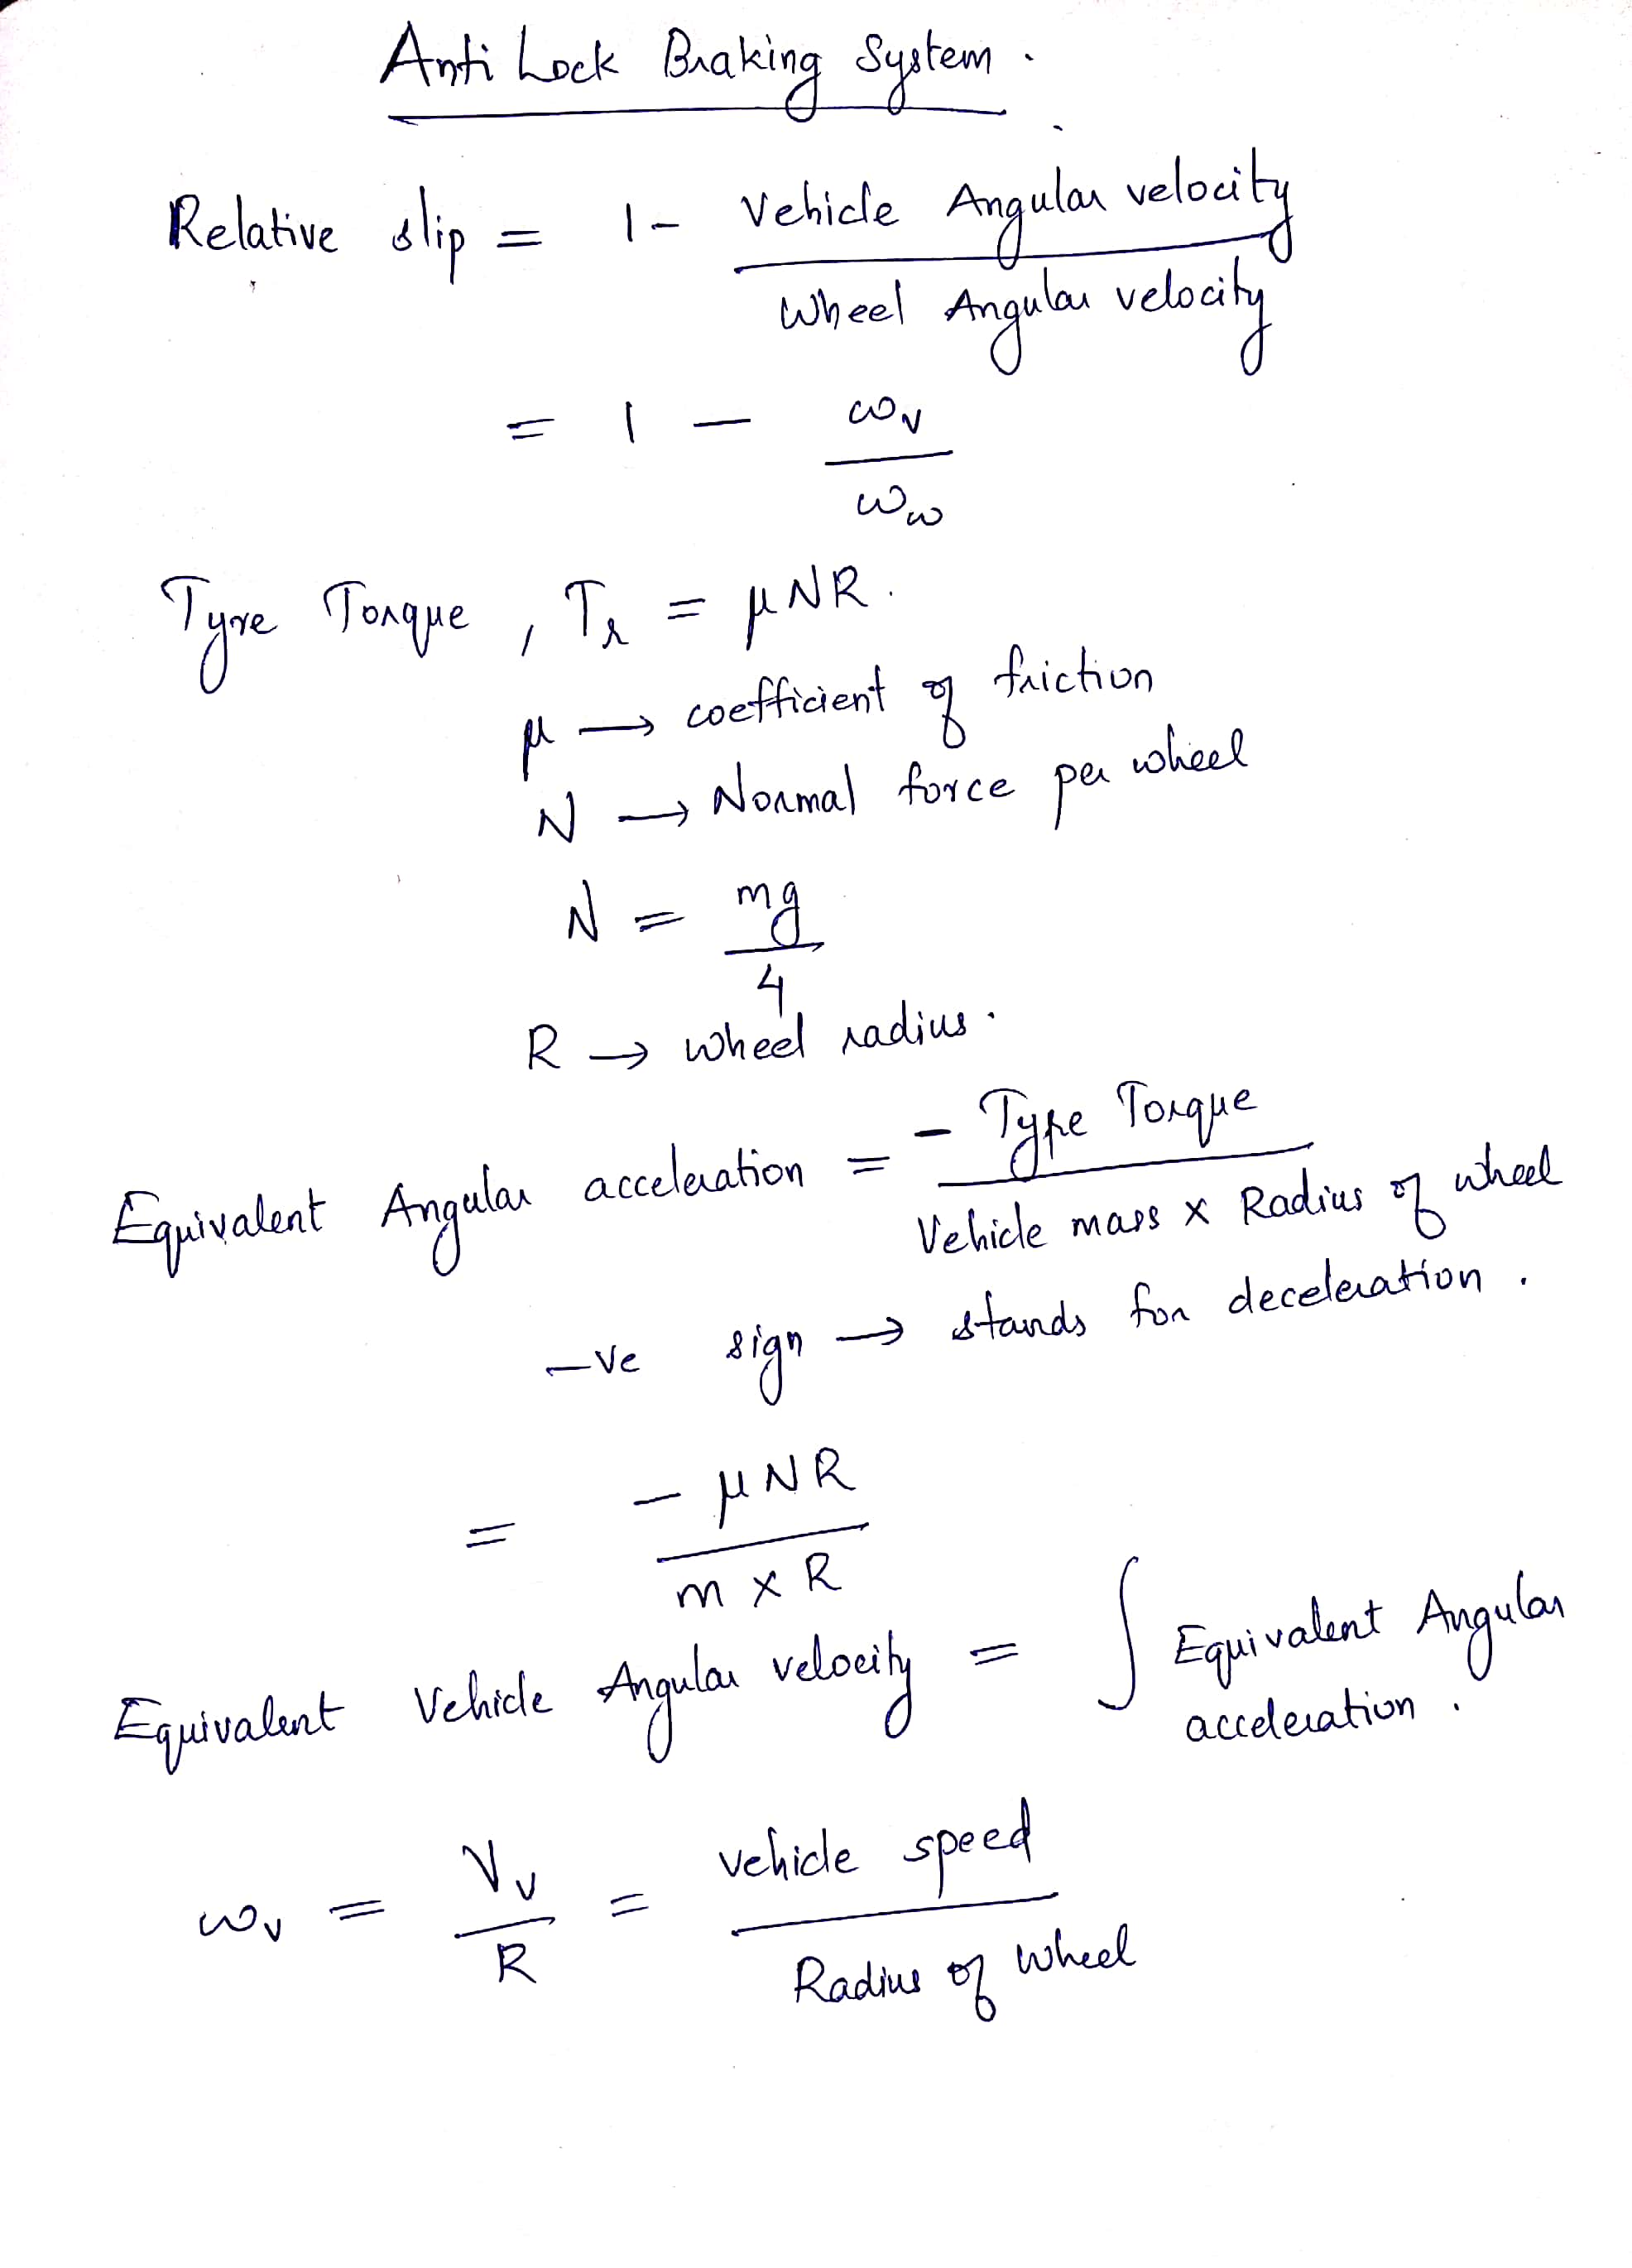 Anti Lock Braking System.
Relative slip = 1 - Vehicle Angular velocity / Wheel Angular velocity
= 1 - ωv / ωw
Tyre Torque, Tr = μNR.
μ → coefficient of friction
N → Normal force per wheel
N = mg / 4
R → wheel radius.
Equivalent Angular acceleration = - Type Torque / Vehicle mass x Radius of wheel
-ve sign → stands for deceleration.
= - μNR / m x R
Equivalent Vehicle Angular velocity = ∫ Equivalent Angular
acceleration.
ωv = Vv / R = vehicle speed / Radius of wheel